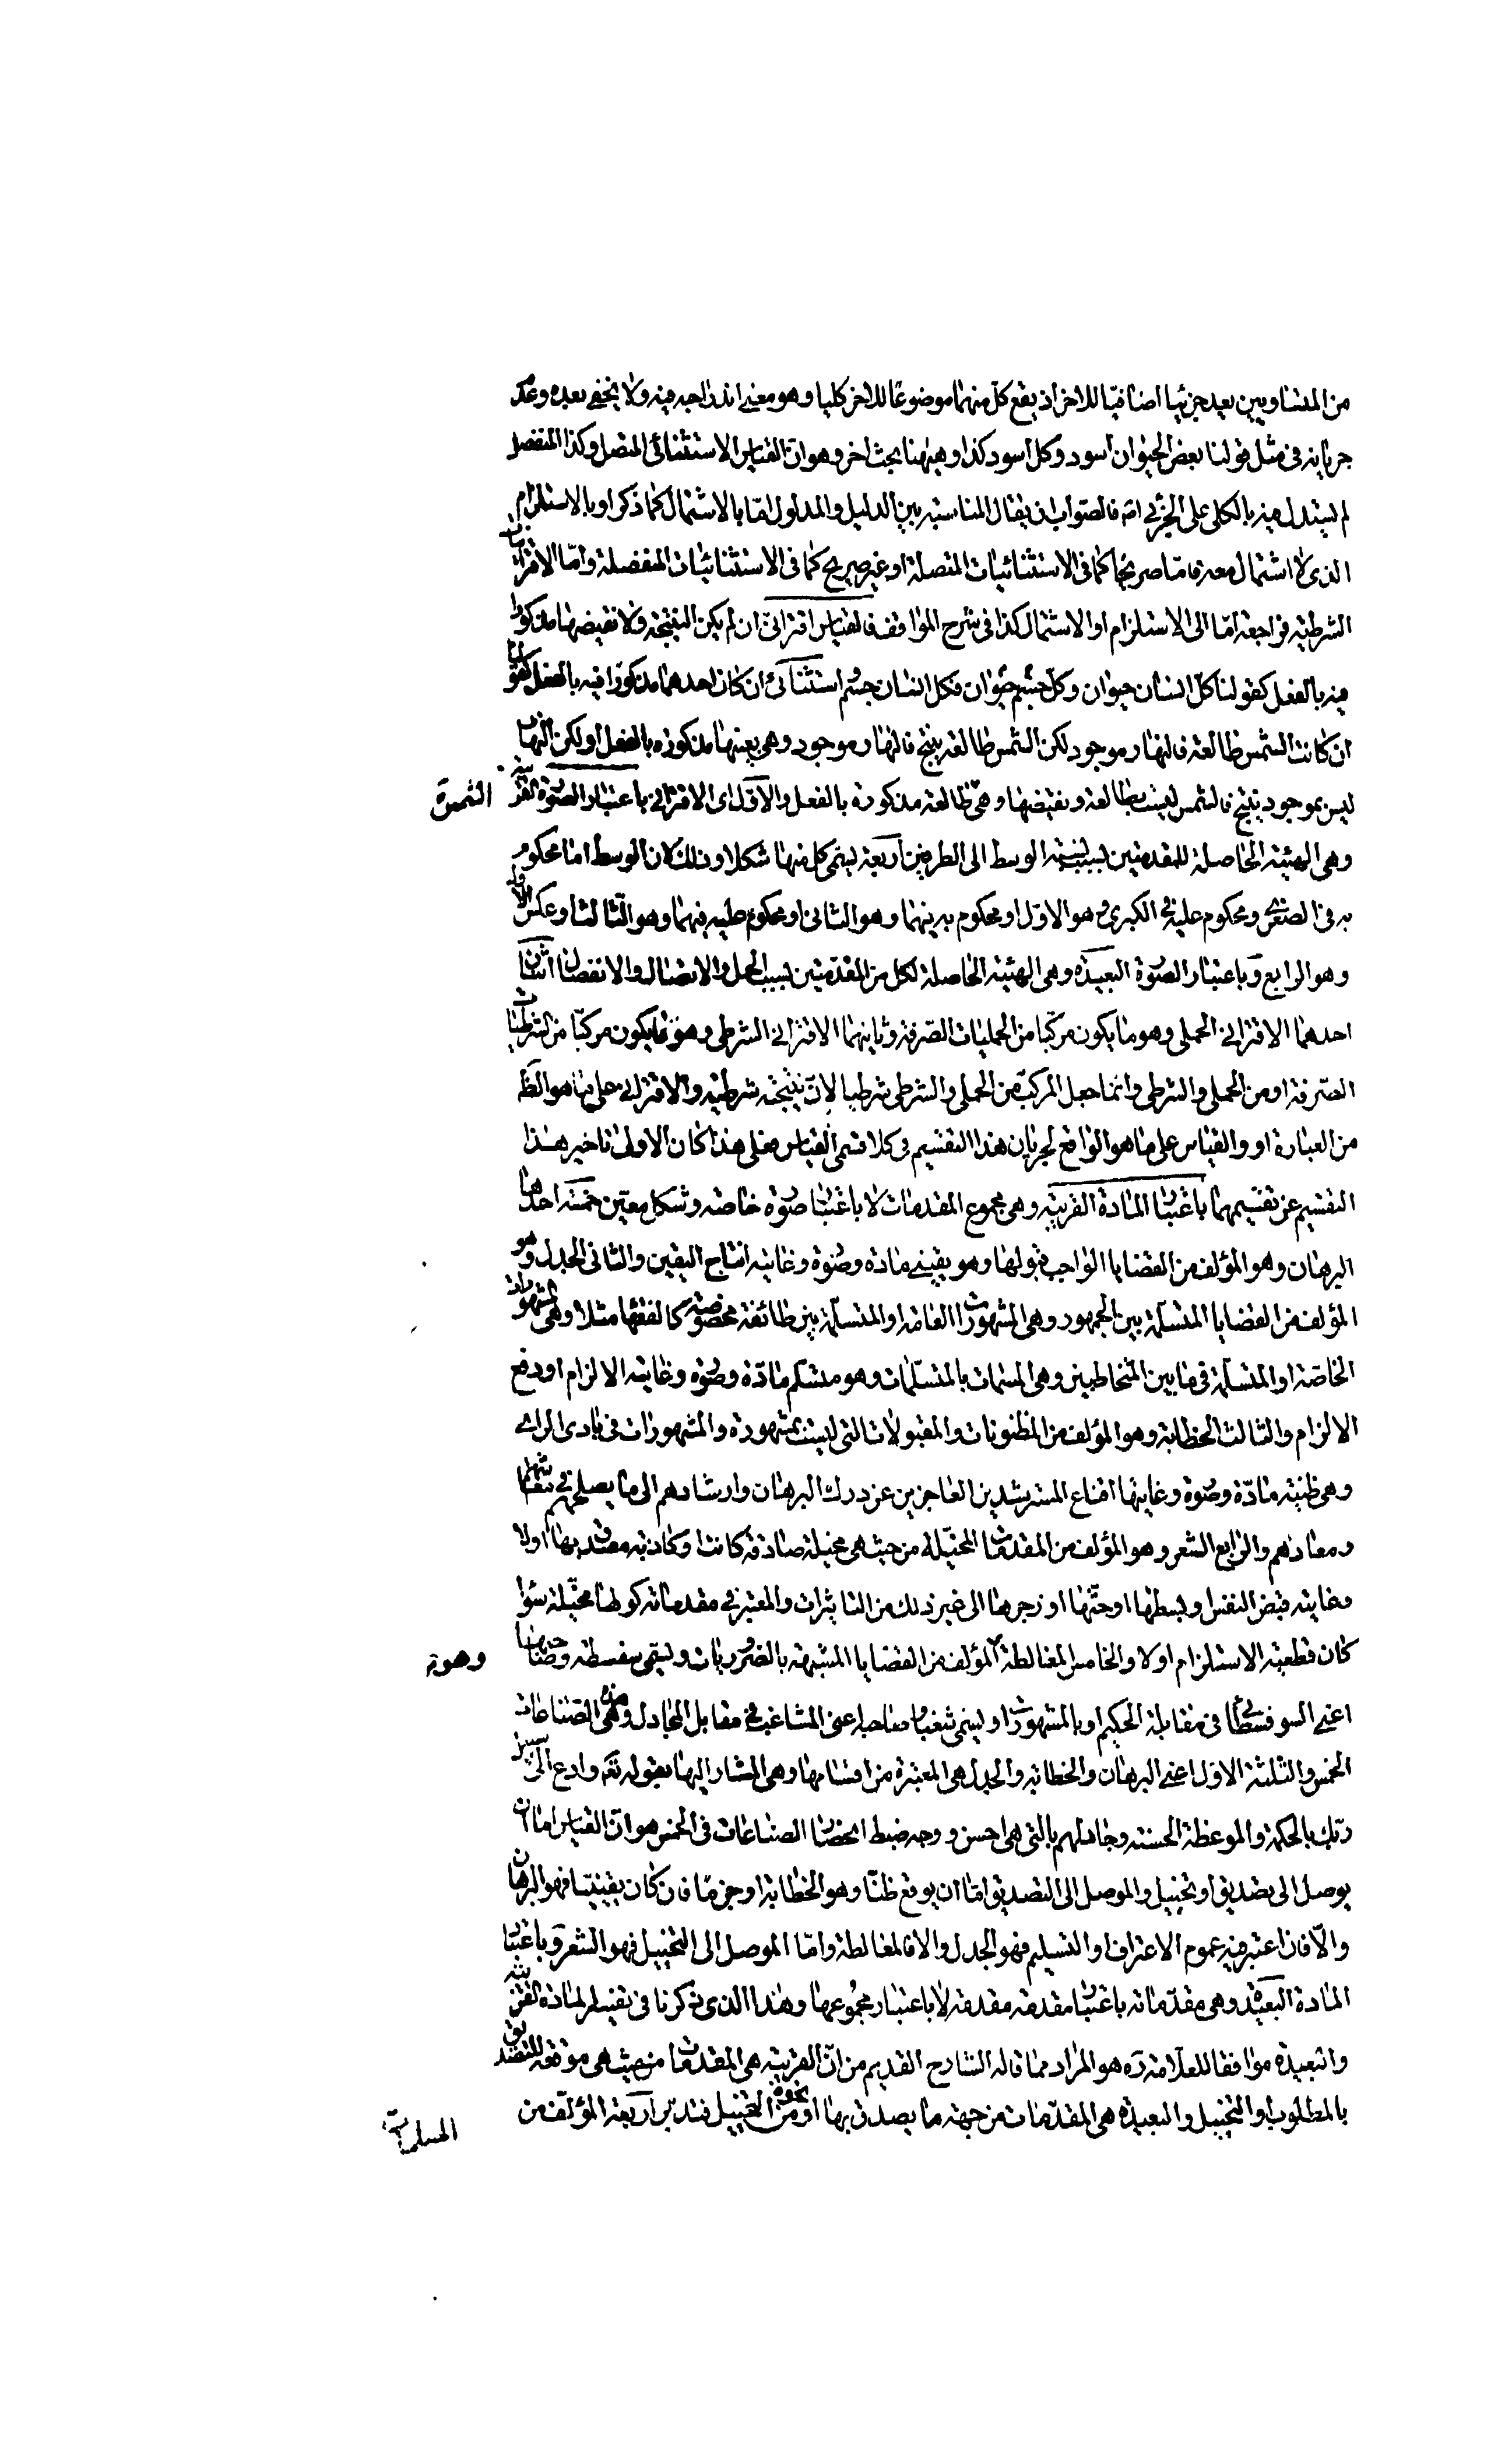 من المتساويين يعد جزئيا اضافيا للاخر اذ يقع كل منهما موضوعا للاخر كليا وهو معنى اندراجه فيه ولا يخفى بعده وعدم
جريانه فى مثل قولنا بعض الحيوان اسود وكل اسود كذا وهيهنا بحث اخر وهو ان القياس الاستثنائى المتصل وكذا المنفصل
لم يستدل فيه بالكلى على الجزئى اه فالصواب ان يقال المناسبة بين الدليل والمدلول امّا بالاشتمال كما ذكر او بالاستلزام
الذى لا اشتمال معه فامّا صريحا كما فى الاستثنائيات المتصلة او غير صريح كما فى الاستثنائيات المنفصلة وامّا الاقترانيات
الشرطية فراجعة امّا الى الاستلزام او الاشتمال كذا فى شرح المواقف فالقياس اقترانىّ ان لم يكن النتيجة ولا نقيضها مذكورا
فيه بالفعل كقولنا كلّ انسان حيوان وكلّ حيوان جسم فكل انسان جسم استثنائىّ ان كان احدهما مذكورا فيه بالفعل كقولنا
ان كانت الشمس طالعة فالنهار موجود لكن الشمس طالعة ينتج فالنهار موجود وهى بعينها مذكوره بالفعل او لكن النهار
ليس بموجود ينتج فالشمس ليست بطالعة ونقيضها وهى طالعة مذكورة بالفعل والاوّل اى الاقترانى باعتبار الصّورة القريبة
الثمرة
وهى الهيئة الحاصلة للمقدمتين بسبب نسبة الوسط الى الطرفين اربعة يسمى كل منها شكلا وذلك لان الوسط امّا محكوم
به فى الصغرى ومحكوم عليه فى الكبرى وهو الاوّل او محكوم به فيهما وهو الثانى او محكوم عليه فيهما وهو الثالث او عكس الاول
وهو الرابع وباعتبار الصّورة البعيدة وهى الهيئة الحاصلة لكل من المقدّمتين بسبب الحمل والاتصال والانفصال اثنان
احدهما الاقترانى الحملى وهو ما يكون مركّبا من الحمليات الصّرفة وثانيهما الاقترانى الشرطى وهو ما يكون مركّبا من الشرطيات
الصّرفة او من الحملى والشرطى وانما جعل المركب من الحملى والشرطى شرطيا لانّ نتيجته شرطية والاقترانى على ما هو الظ
من العبارة او والقياس على ما هو الواقع لجريان هذا التقسيم فى كلا قسمى القياس فعلى هذا كان الاولى تاخير هذا
التقسيم عن تقسيمهما باعتبار المادة القريبة وهى مجموع المقدمات لا باعتبار صورة خاصة وشكل معين خمسة احدها
البرهان وهو المؤلف من القضايا الواجب قبولها وهو يقينى مادة وصورة وغايته انتاج اليقين والثانى الجدل وهو
المؤلف من القضايا المتسلّمة بين الجمهور وهى المشهورات العامة او المتسلّمة بين طائفة مخصوصة كالفقها مثلا وهى المشهورات
الخاصّة او المتسلّمة فى ما بين المتخاطبين وهى المسمات بالمتسلّمات وهو متسلّم مادّة وصورة وغايته الالزام او دفع
الالزام والثالث الخطابة وهو المؤلف من المظنونات والمقبولات التى ليست بمشهورة والمشهورات فى بادى الراى
وهى ظنية مادّة وصورة وغايتها اقناع المسترشدين العاجزين عن درك البرهان وارشادهم الى ما يصلحهم فى معاشهم
ومعادهم والرابع الشعر وهو المؤلف من المقدمات المخيّلة من حيث هى مخيلة صادقة كانت او كاذبة مصدق بها اولا
وغايته قبض النفس او بسطها او حثّها او زجرها الى غير ذلك من التاثيرات والمعتبر فى مقدماته كونها مخيّلة سواء
كان قطعية الاستلزام اولا والخامس المغالطة المؤلف من القضايا المشبهة بالضروريات ويسمى سفسطة وصاحبها
وهو
اعنى السوفسطائى فى مقابلة الحكيم او بالمشهورات ويسمى شغبا وصاحبه اعنى المشاغب فى مقابل المجادل وهذه هى الصّناعات
الخمس والثلثة الاول اعنى البرهان والخطابة والجدل هى المعتبرة من اقسامها وهى المشار اليها بقوله تعه وادع الى سبيل
ربك بالحكمة والموعظة الحسنة وجادلهم بالتى هى احسن ووجه ضبط انحصار الصناعات فى الخمس هو انّ القياس امّا ان
يوصل الى تصديق او تخييل والموصل الى التصديق امّا ان يوقع ظنّا وهو الخطابة او جزمّا فان كان يقينيّا فهو البرهان
والّا فان اعتبر فيه عموم الاعتراف او التسليم فهو الجدل والا فالمغالطة وامّا الموصل الى التخييل فهو الشعر وباعتبار
المادة البعيدة وهى مقدّماته باعتبار مقدمة مقدمة لا باعتبار مجموعها وهذا الذى ذكرنا فى تفسير المادة القريبة
والبعيدة موافقا للعلّامة ره هو المراد مما قاله الشارح القديم من انّ القريبة هى المقدمات من حيث هى موقعة للتصديق
بالمطلوب او التخييل والبعيدة هى المقدّمات من جهة ما يصدق بها او نحوه من التخييل فتدبّر اربعة المؤلف من
المسلمات